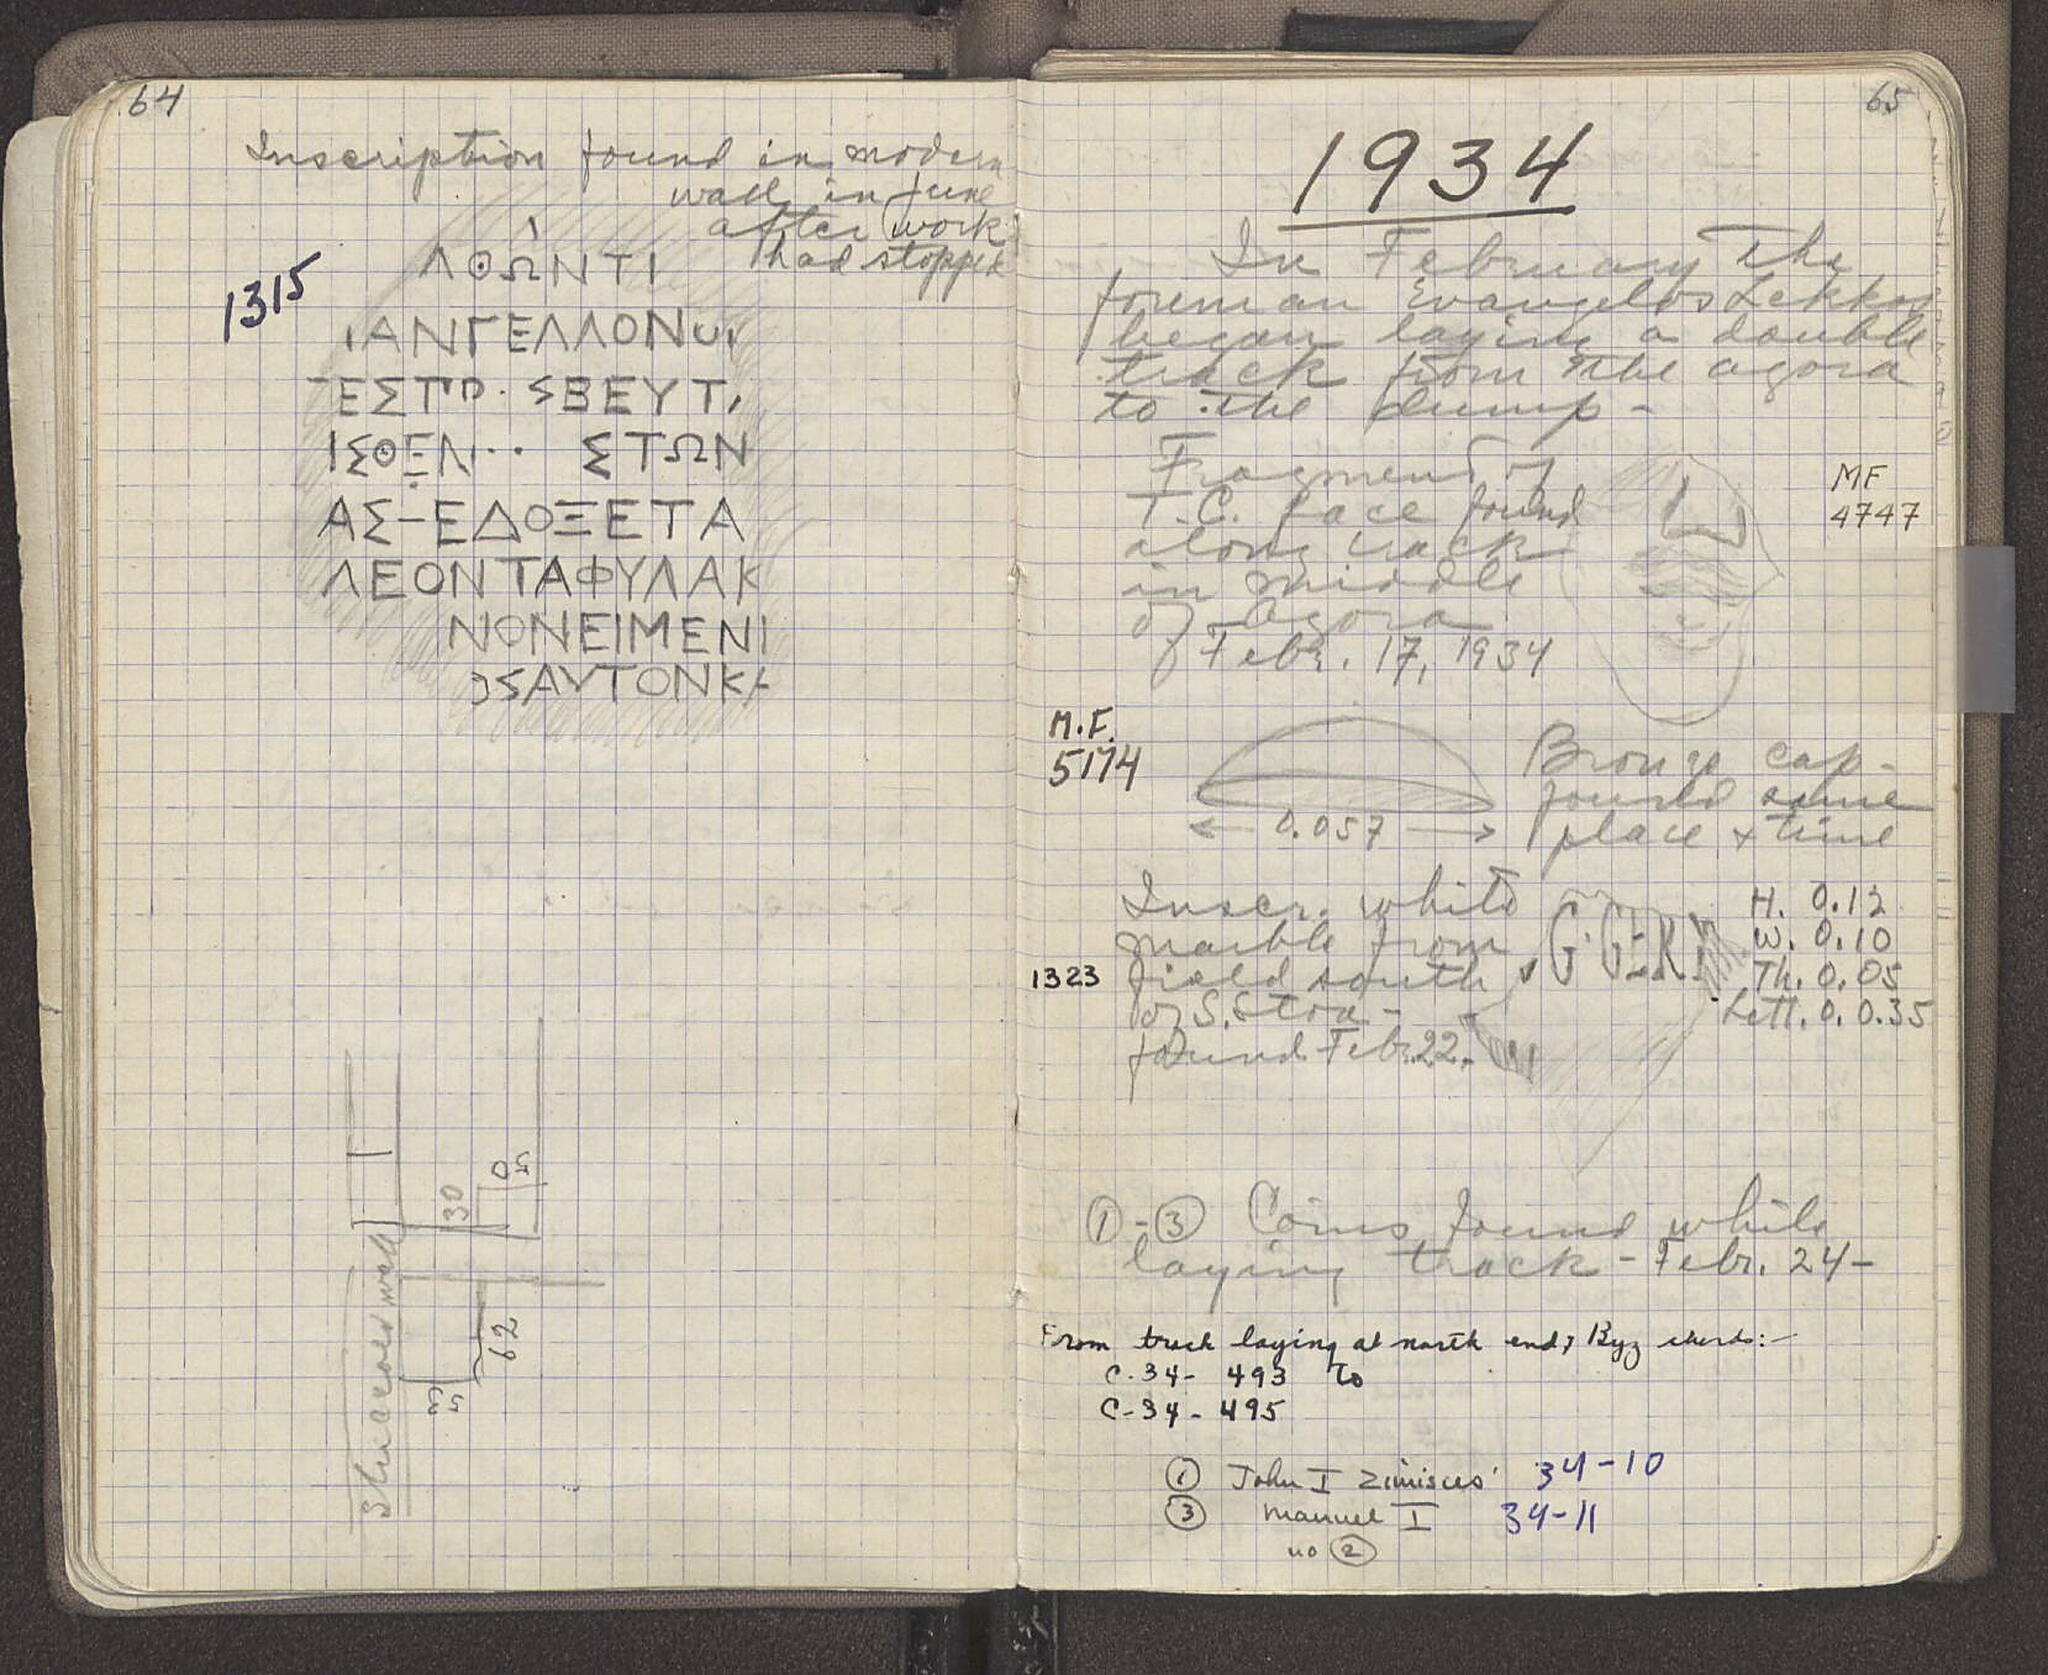 64
Inscription found in modern
wall in June
after work
had stopped
1315
ΛΘΩΝΤΙ
ΙΑΝΓΕΛΛΟΝ
ΒΕΥΤ
ΙΣΘΕΝ·· ΣΤΩΝ
ΑΣ–ΕΔΟΞΕΤΑ
ΛΕΟΝΤΑΦΥΛΑΚ
ΝΟΝΕΙΜΕΝΙ
ΑΥΤΟΝΚ
50
30
62
wall
65
1934
In February the
foreman Evangelos Lekkos
began laying a double
track from the agora
to the dump –
Fragment of
T.C. face found
along track
in middle
of Agora
Febr. 17, 1934
MF
4747
M.F.
5174
0.057
Bronze cap –
found same
place + time
Inscr. white
marble from
1323 field south
of S. Stoa –
found Febr. 22.
G·GER
H. 0.12
W. 0.10
Th. 0.05
Lett. 0.0.35
① - ③ Coins found while
laying track – Febr. 24 –
From track laying at north end, Byz sherds: –
C-34- 493 to
C-34- 495
① John I Zimisces 34-10
③ Manuel I 34-11
no ②